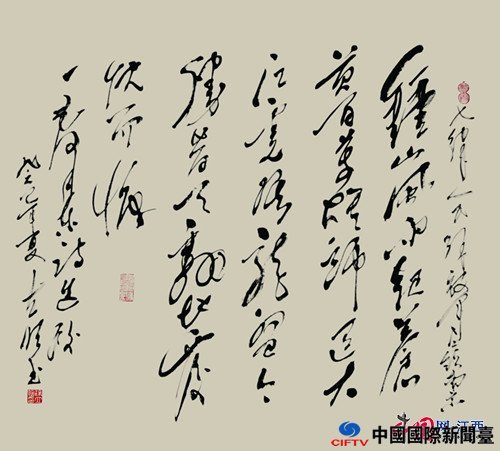 七律人民解放军占领南京
鍾山風雨起蒼
黄百萬雄師過大
江虎踞龍盤今
勝昔天翻地覆
慨而慷
毛泽东诗
年夏
书
中国网·江西
CIFTV 中國國際新聞臺